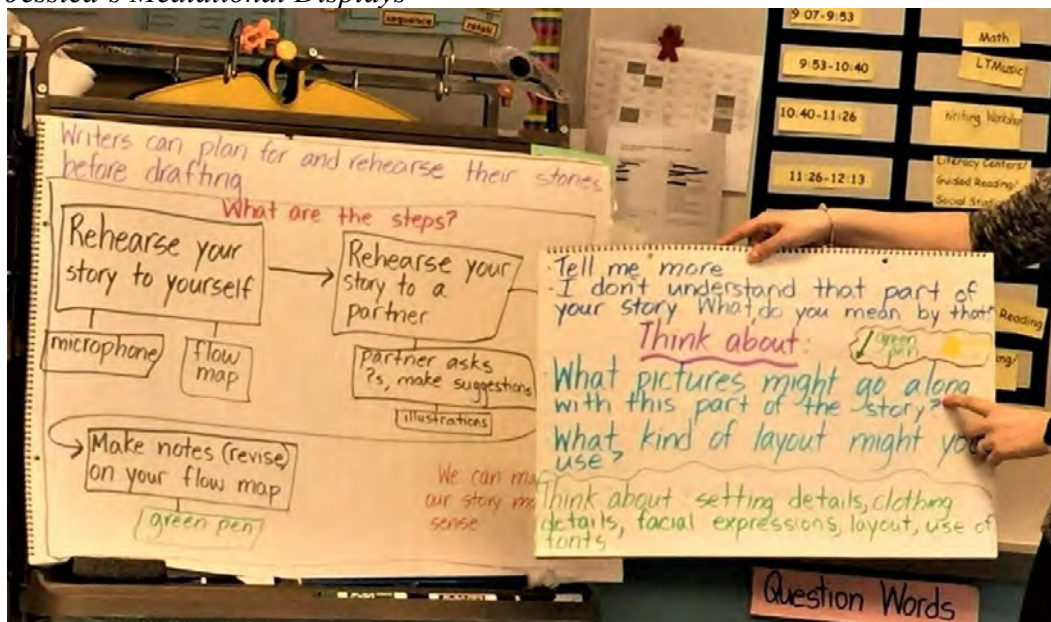 Jessica's Mediational Displays
sequence
retell
9:07-9:53
Math
9:53-10:40
LTMusic
10:40-11:26
Writing Workshop
11:26-12:13
Literacy Centers/
Guided Reading/
Social
Reading
Writers can plan for and rehearse their stories
before drafting
What are the steps?
Rehearse your
story to yourself
microphone
flow
map
Rehearse your
story to a
partner
partner asks
?s, make suggestions
illustrations
Make notes (revise)
on your flow map
green pen
We can
our story
sense
· Tell me more
· I don't understand that part of
your story What do you mean by that?
Think about:
green
pen
· What pictures might go along
with this part of the story?
· What kind of layout might you
use?
Think about setting details, clothing
details, facial expressions, layout, use of
fonts
Question Words